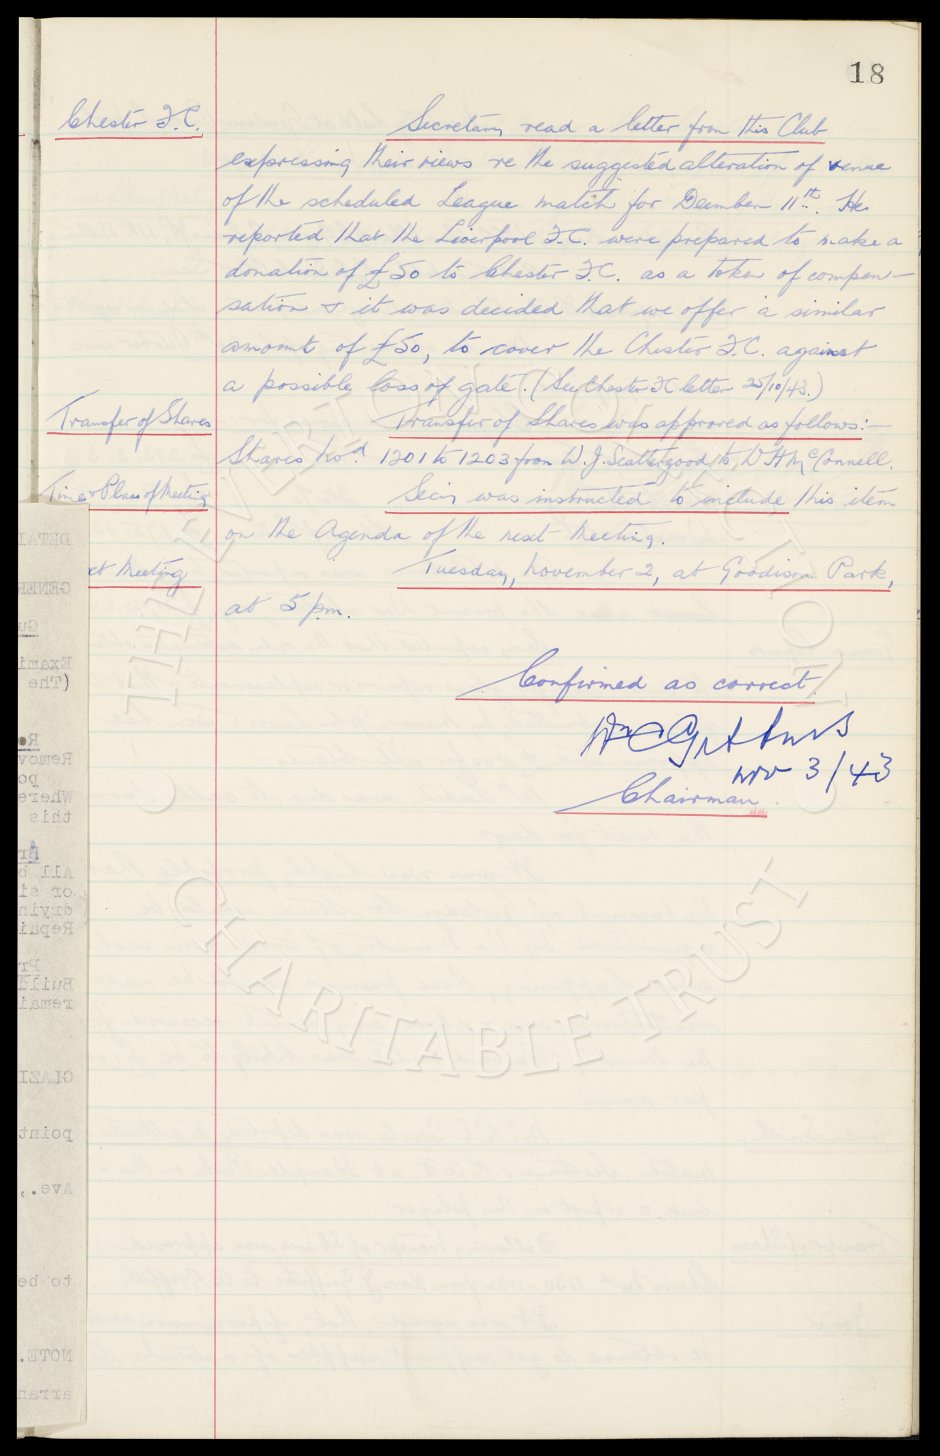 18
Chester F.C. Secretary read a letter from this Club
expressing their views re the suggested alteration of venue
of the scheduled League match for December 11th. He
reported that the Liverpool F.C. were prepared to make a
donation of £50 to Chester F.C. as a token of compen-
sation & it was decided that we offer a similar
amount of £50, to cover the Chester F.C. against
a possible loss of gate. (See Chester FC letter 25/10/43.)
Transfer of Shares Transfer of Shares was approved as follows:-
Shares Nod. 1201 to 1203 from W.J. Scattergood to W A McConnell.
Time & Place of Meeting Secy was instructed to include this item
on the Agenda of the next Meeting.
xt Meeting Tuesday, November 2, at Goodison Park,
at 5 pm.
Confirmed as correct.
Nov 3/43
Chairman.
THE EVERTON COLLECTION
CHARITABLE TRUST